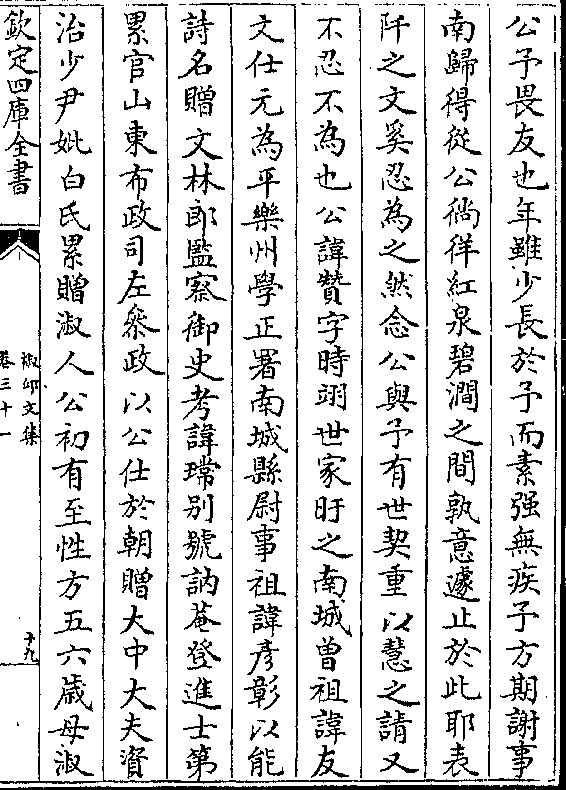 公予畏友也年雖少長於予而素强無疾予方期謝事
南歸得從公徜徉紅泉碧澗之間孰意遽止於此耶表
阡之文奚忍為之然念公與予有世契重以慧之請又
不忍不為也公諱贊字時翊世家旴之南城曽祖諱友
文仕元為平樂州學正署南城縣尉事祖諱彦彰以能
詩名贈文林郎監察御史考諱瑺别號訥菴登進士第
累官山東布政司左叅政以公仕於朝贈大中大夫資
治少尹妣白氏累贈淑人公初有至性方五六歲母淑
欽定四庫全書
椒邱文集
卷三十一
十九